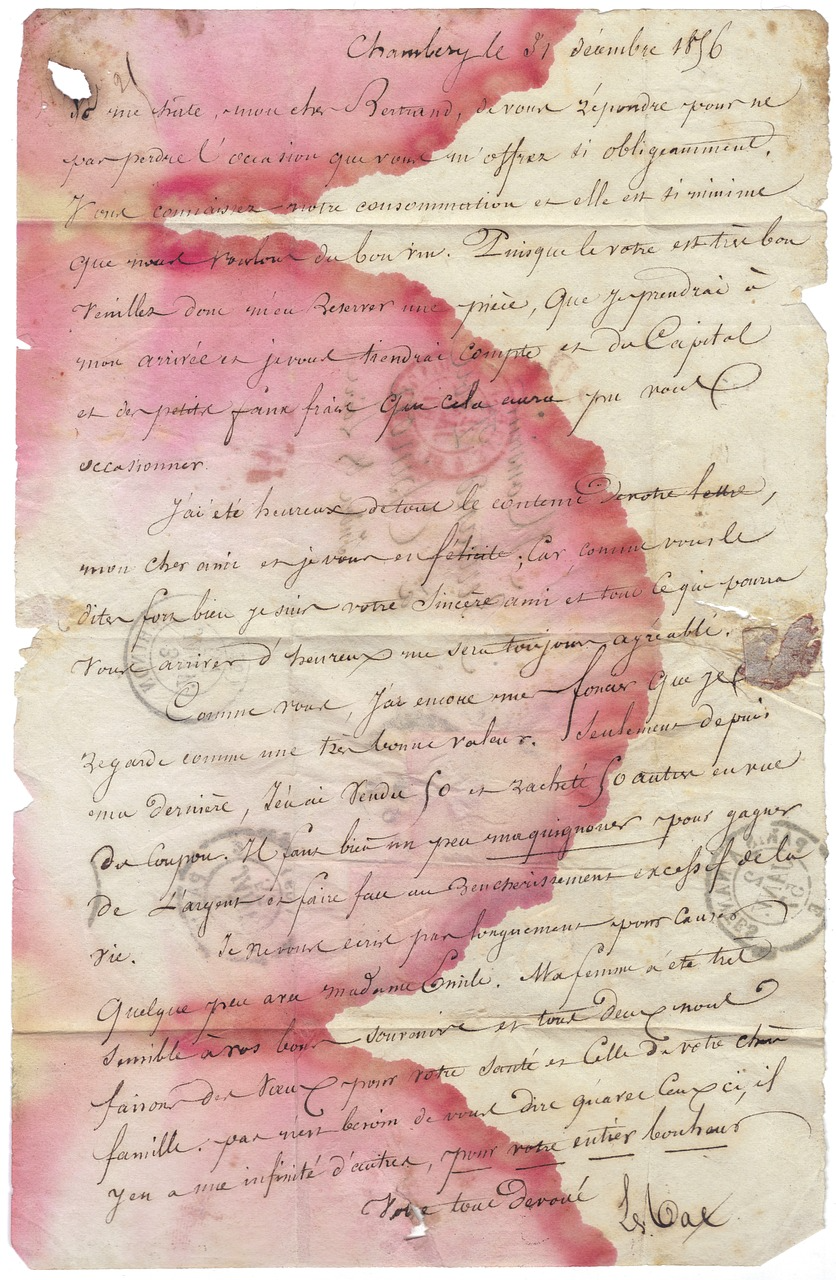 Chambéry le 31 décembre 1856
Je me hate, mon cher Bertrand, de vous répondre pour ne
pas perdre l'occasion que vous m'offrez si obligeamment.
Vous connaissez notre consommation et elle est si minime
que nous voulons du bon vin. Puisque le votre est très bon
Veuillez donc m'en Reserver une pièce, que je prendrai à
mon arrivée et je vous tiendrai compte et du Capital
et des petits faux frais que cela aura pu vous
occasionner.
J'ai été heureux de tout le contenu de votre lettre,
mon cher ami et je vous en félicite; Car, comme vous le
dites fort bien je suis votre Sincère ami et tout ce qui pourra
Vous arriver d'heureux me sera toujours agréable.
Comme vous, J'ai encore mes foncier que je
Regarde comme une très bonne valeur. Seulement depuis
ma dernière, J'en ai Vendu 50 et racheté 50 autres en vue
du Coupon. Il faut bien un peu maquignoner pour gagner
De L'argent et faire face au Rencherissement excessif de la
vie. Je ne vous écris pas longuement pour Causer
Quelque peu avec madame Emile. Ma femme a été très
Sensible à vos bons souvenirs et tous deux nous
faisons des Vœux pour votre santé et Celle de votre chère
famille. pas n'est besoin de vous dire qu'avec Ceux ci, il
y en a une infinité d'autres, pour votre entier bonheur
Votre tout Devoué